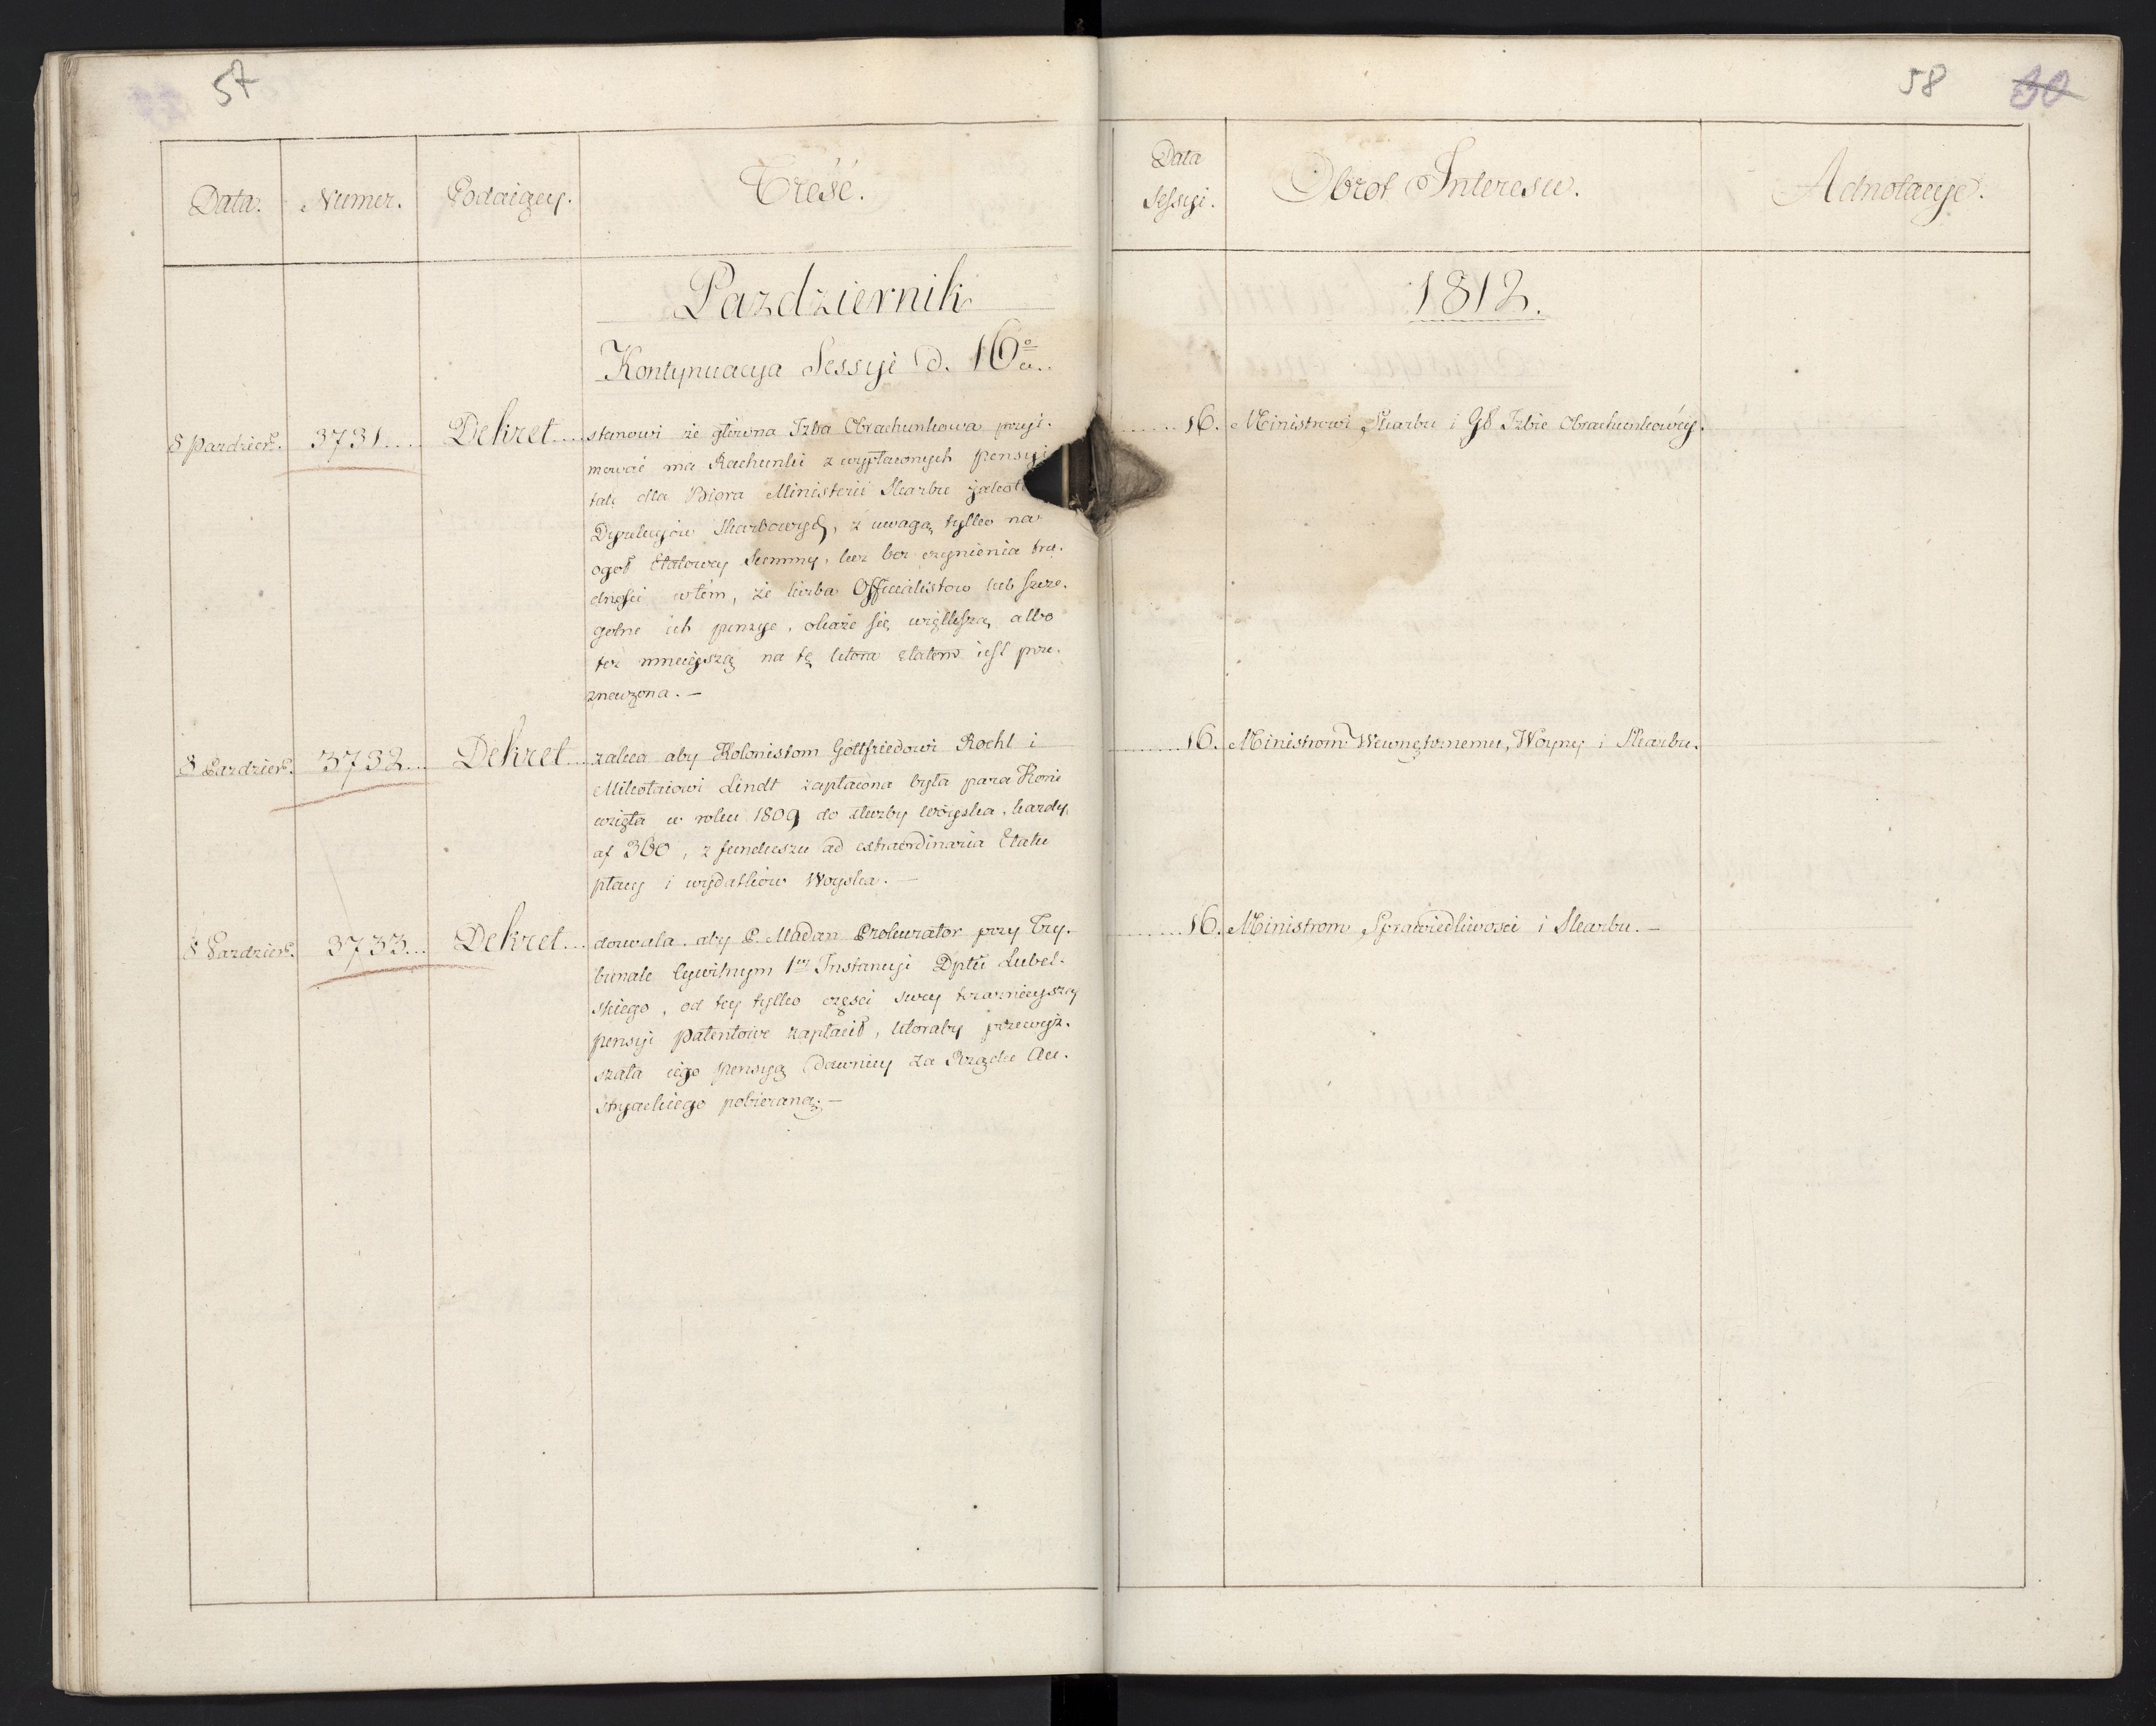 57
Data.
Numer.
Podaiący.
Treść.
Pazdziernik
Kontynuacya Sessyi d. 16º
8 Pazdzier.
3731....
Dekret....
stanowi że główna Izba Obrachunkowa przyi-
mować ma Rachunki z wypłaconych pensyi
tak dla Biora Ministerii Skarbu jako
Dyrekcyiów Skarbowych, z uwagą tylko na
ogół Etatowey Summy, lecz bez czynienia tru-
dności w tém, że liczba Officialistow lub szcze-
gólne ich penzye, okaże się większą, albo
też mnieyszą na tę ktora etatem iest prze-
znaczona. —
8 Pazdzier.
3732...
Dekret....
zaleca aby Kolonistom Gottfriedowi Rochl i
Mikołaiowi Lindt zapłacona była para Koni
wzięta w roku 1809 do służby woyska, każdy
af 360, z funduszu ad extraordinaria Etatu
płacy i wydatków Woyska. —
8 Pazdzier.
3733...
Dekret...
dozwala, aby P. Madan Prokurator przy Try-
bunale Cywilnym 1ey Instancyi Dptu Lubel-
skiego, od tey tylko części swey terazniéyszey
pensyi Patentowe zapłacił, ktoraby przewyż-
szała iego pensyą dawniey za Rządu Au-
stryackiego pobieraną. —
58
30
Data
Sessyi.
Obrot Interesu.
Adnotacye.
1812.
......16. Ministrowi Skarbu i Gł Izbie Obrachunkowéy.
......16. Ministrom Wewnętrznemu, Woyny i Skarbu.
......16. Ministrom Sprawiedliwosci i Skarbu. —